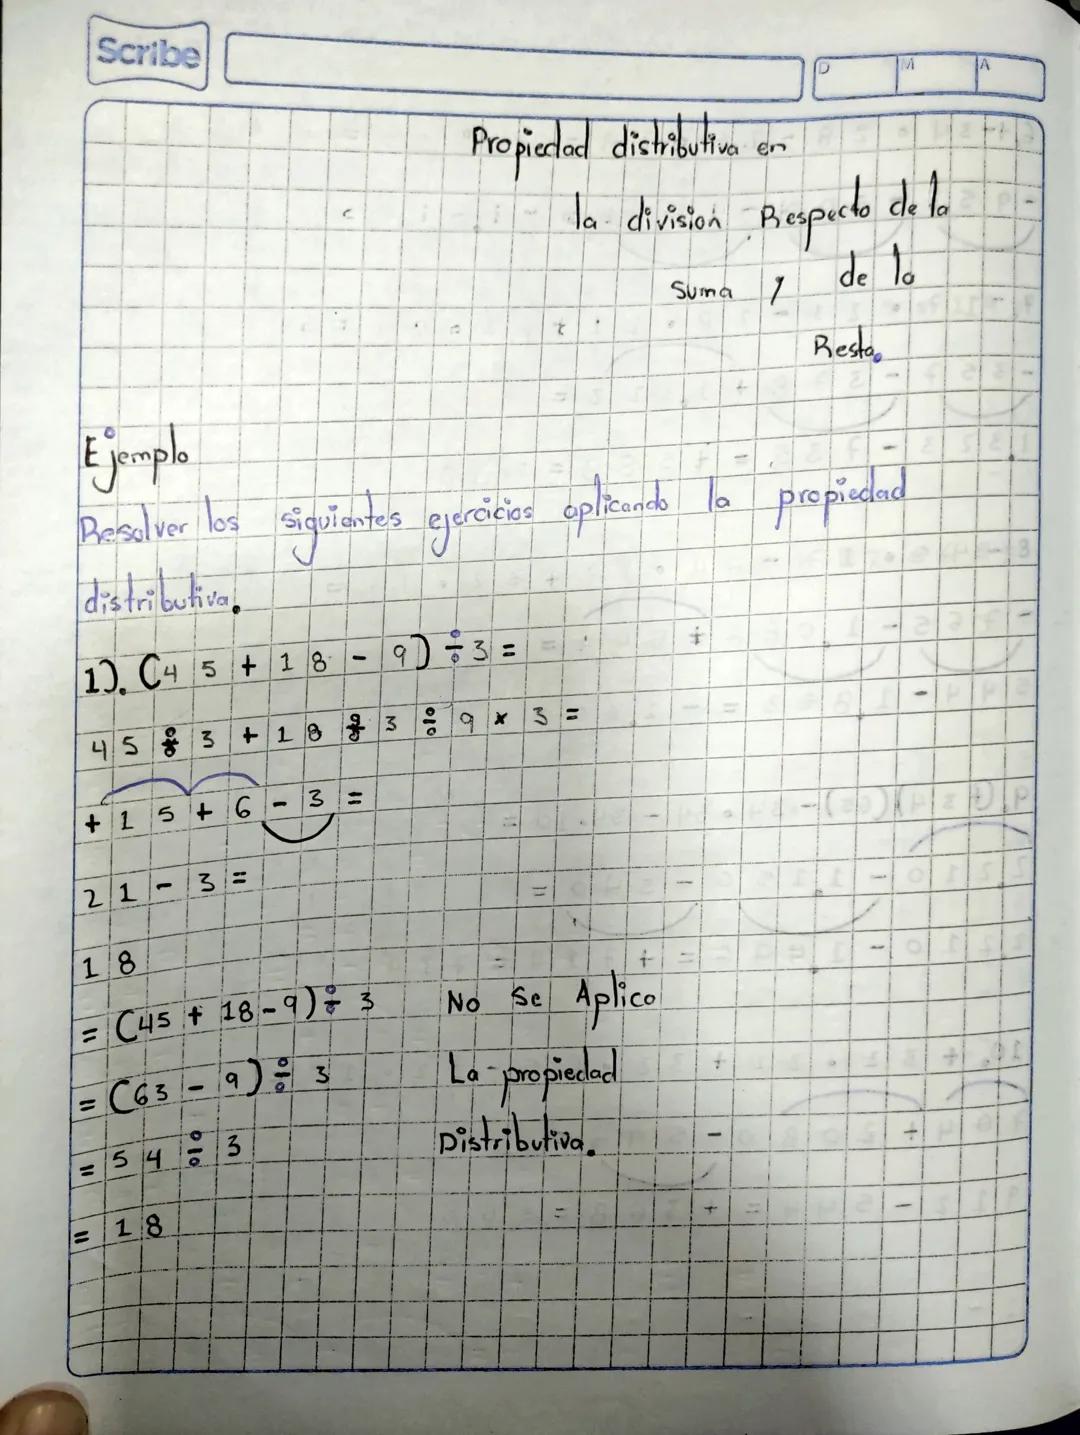 Scribe
D M A
Propiedad distributiva en
la division Respecto de la
suma y de la
Resta.
Ejemplo
Resolver los siguientes ejercicios aplicando la propiedad
distributiva.
1). (45 + 18 - 9) ÷ 3 =
45 ÷ 3 + 18 ÷ 3 ÷ 9 × 3 =
+ 15 + 6 - 3 =
21 - 3 =
18
= (45 + 18 - 9) ÷ 3 No se Aplico
= (63 - 9) ÷ 3 La propiedad
= 54 ÷ 3 Distributiva.
= 18